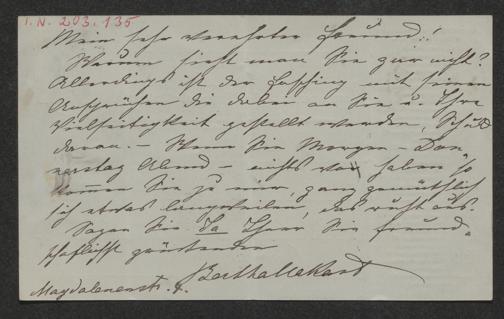 I. N. 203.135
Mein sehr verehrter Freund!
Warum sieht man Sie gar nicht?
Allerdings ist der Fasching mit seinen
Ansprüchen die dabei an Sie u. Ihre
Vielseitigkeit gestellt werden, Schuld
daran. – Wenn Sie Morgen – Don-
nerstag Abend – nichts vor haben so
kommen Sie zu mir, ganz gemüthlich
sich etwas langweilen, das ruht aus.
Sagen Sie Ja Ihrer Sie freund-
schaftlichst grüßenden
Bertha Makart
Magdalenenstr.